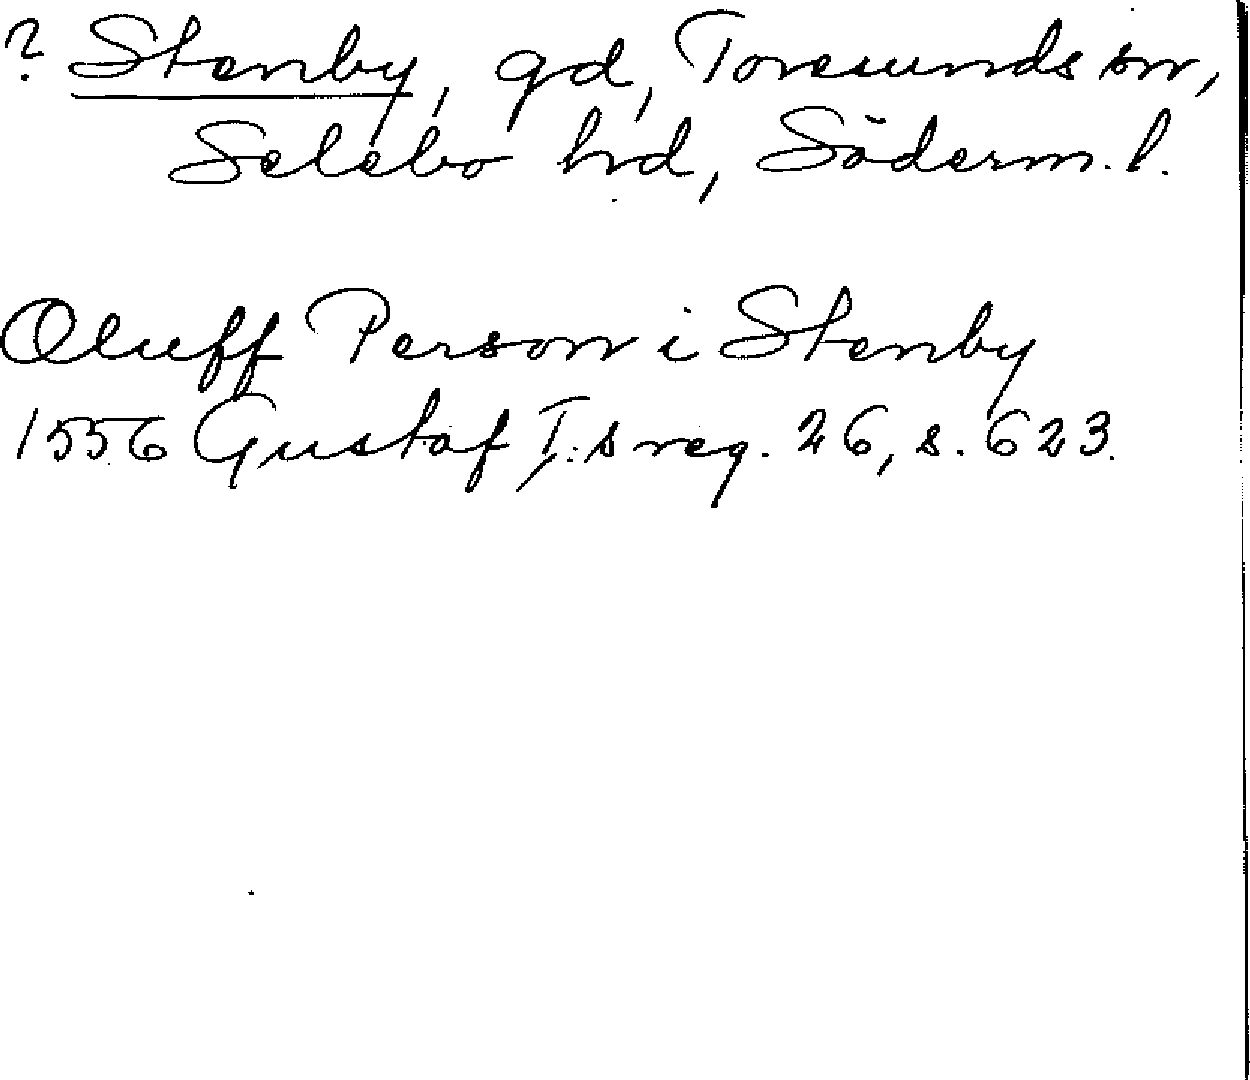 ? Stenby, gd, Toresunds sn,
Selebo hd, Söderm. l.
Oluff Person i Stenby
1556 Gustaf I:s reg. 26, s. 623.